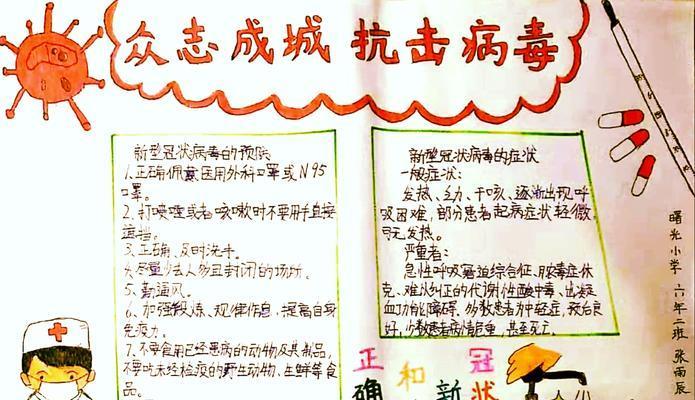 众志成城 抗击病毒
新型冠状病毒的预防
1.正确佩戴医用外科口罩或N95
口罩。
2.打喷嚏或者咳嗽时不要用手直接
遮挡。
3.正确、及时洗手。
4.尽量少去人多且封闭的场所。
5.勤通风。
6.加强锻炼、规律作息,提高自身
免疫力。
7.不要食用已经患病的动物及其制品,
不要吃未经检疫的野生动物、生鲜等食
品。
新型冠状病毒的症状
一般症状:
发热、乏力、干咳、逐渐出现呼
吸困难,部分患者起病症状轻微,
可无发热。
严重者:
急性呼吸窘迫综合征、脓毒症休
克、难以纠正的代谢性酸中毒、出凝
血功能障碍。多数患者为中轻症,预后良
好,少数患者病情危重,甚至死亡。
曙光小学 六年二班 张雨辰
正 和 冠
确 新 状